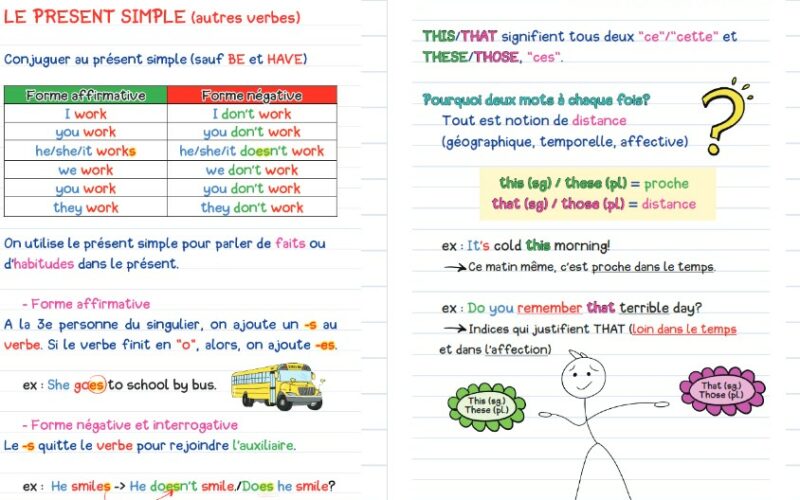 LE PRESENT SIMPLE (autres verbes)
Conjuguer au présent simple (sauf BE et HAVE)
Forme affirmative Forme négative
I work I don't work
you work you don't work
he/she/it works he/she/it doesn't work
we work we don't work
you work you don't work
they work they don't work
On utilise le présent simple pour parler de faits ou
d'habitudes dans le présent.
- Forme affirmative
A la 3e personne du singulier, on ajoute un -s au
verbe. Si le verbe finit en "o", alors, on ajoute -es.
ex : She goes to school by bus.
- Forme négative et interrogative
Le -s quitte le verbe pour rejoindre l'auxiliaire.
ex : He smiles -> He doesn't smile./Does he smile?
THIS/THAT signifient tous deux "ce"/"cette" et
THESE/THOSE, "ces".
Pourquoi deux mots à chaque fois?
Tout est notion de distance
(géographique, temporelle, affective)
this (sg) / these (pl) = proche
that (sg) / those (pl) = distance
ex : It's cold this morning!
Ce matin même, c'est proche dans le temps.
ex : Do you remember that terrible day?
Indices qui justifient THAT (loin dans le temps
et dans l'affection)
This (sg.)
These (pl.)
That (sg.)
Those (pl.)